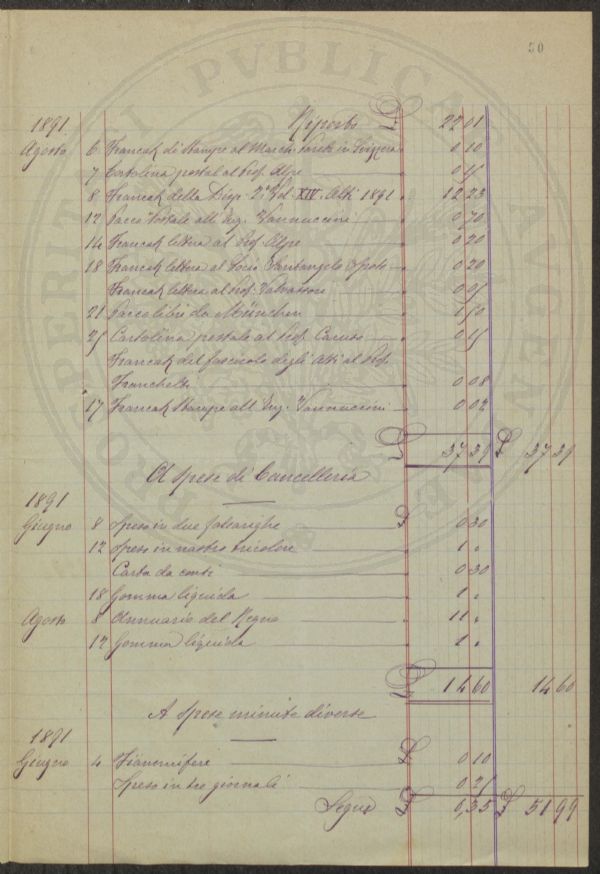 50
1891 Riporto £ 22 01
Agosto 6 Francat. di Stampe al March. in Svizzera 0 10
7 Cartolina postal al Prof. Alpe 0 15
8 Francat. della Disp. 2ª Vol. XIV. Atti 1891 12 23
12 Pacco Postale all'Ing. Vannuccini 0 70
14 Francat. lettera al Prof. Alpe 0 20
18 Francat. lettera al Socio Santangelo Spoto 0 20
Francat. lettera al Prof. Valvassori 0 05
21 Pacco libri da München 1 50
25 Cartolina postale al Prof. Caruso 0 15
Francat. del fascicolo degli Atti al Prof.
Franchetti 0 08
17 Francat. Stampe all'Ing. Vannuccini 0 02
£ 37 39 £ 37 39
A Spese di Cancelleria
1891
Giugno 8 Speso in due falsarighe £ 0 30
12 Speso in nastro tricolore 1 "
Carta da conti 0 30
18 Gomma liquida 1 "
Agosto 8 Annuario del Regno 11 "
12 Gomma liquida 1 "
£ 14 60 14 60
A Spese minute diverse
1891
Giugno 4 Fiammifere £ 0 10
Speso in tre giornali 0 25
Segue £ 0,35 £ 51 99